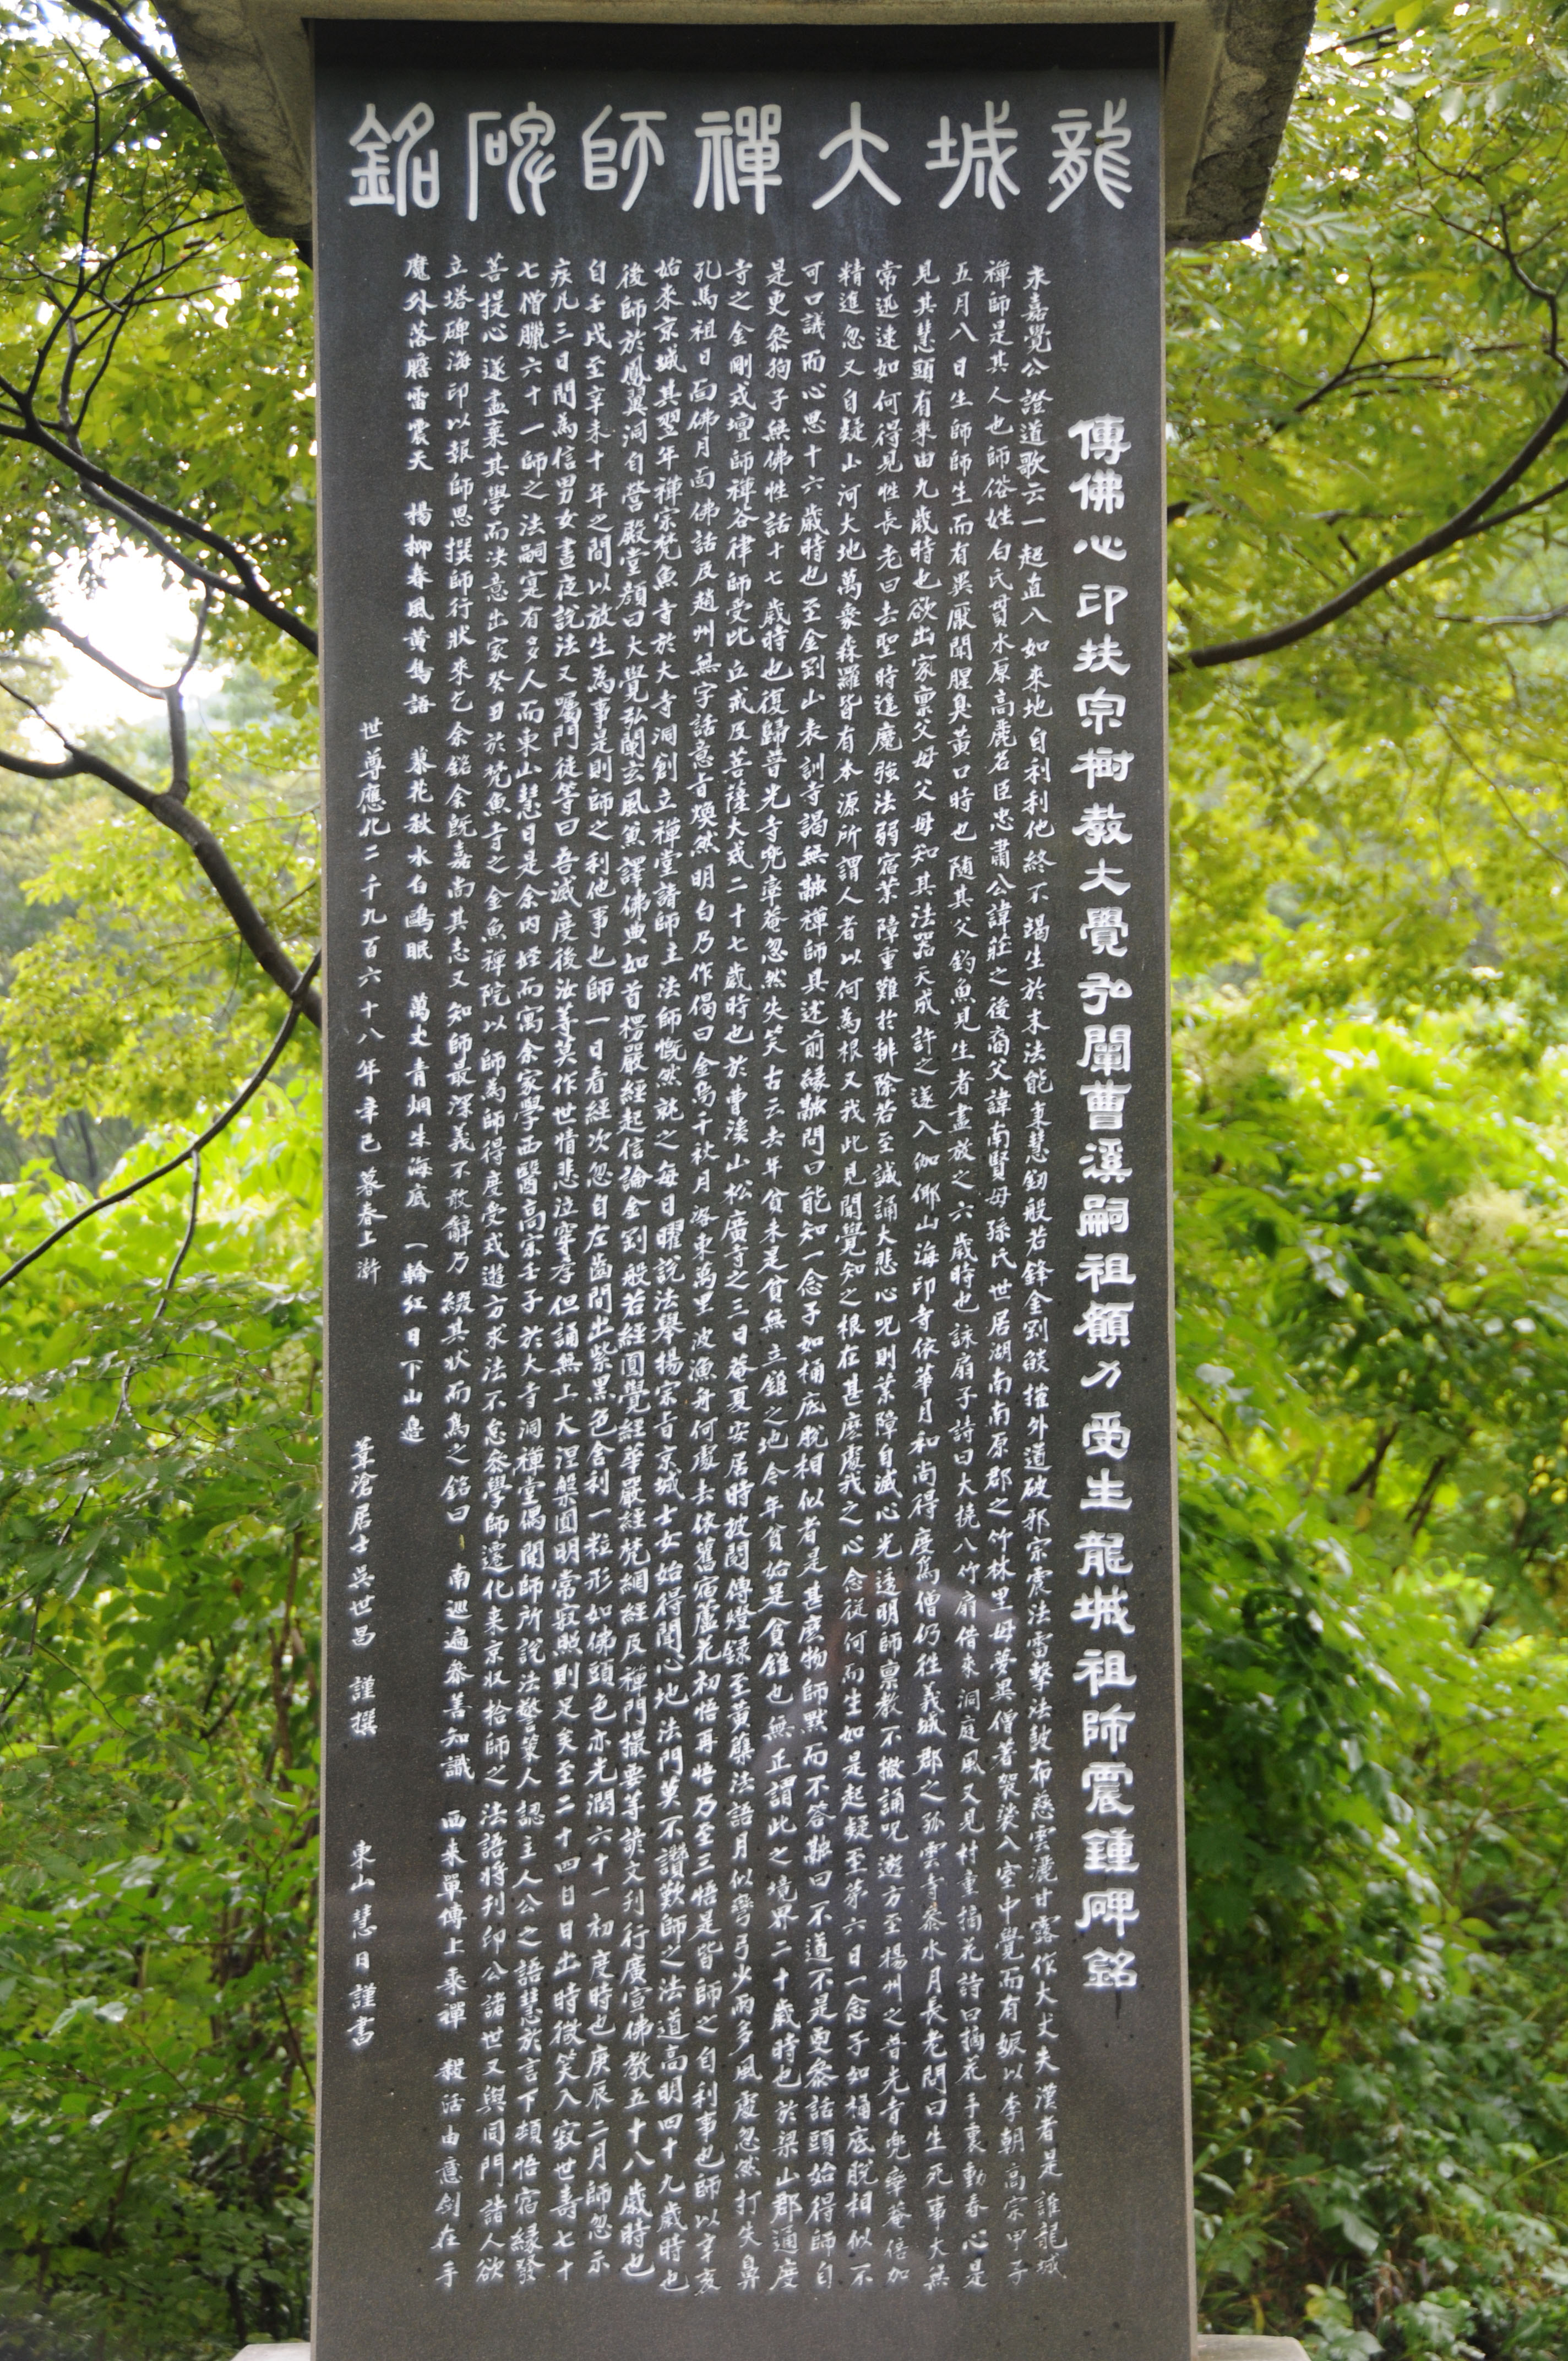 龍城大禪師碑銘
傳佛心印扶宗樹教大覺弘闡曹溪嗣祖願力受生龍城祖師震鍾碑銘
永嘉覺公證道歌云一超直入如來地自利利他終不竭生於末法能秉慧釰般若鋒金剛燄摧外道破邪宗震法雷擊法鼓布慈雲灑甘露作大丈夫漢者是誰龍城
禪師是其人也師俗姓白氏貫水原高麗名臣忠肅公諱莊之後裔父諱南賢母孫氏世居湖南南原郡之竹林里母夢異僧著袈裟入室中覺而有娠以李朝高宗甲子
五月八日生師師生而有異厭聞腥臭黃口時也随其父釣魚見生者盡放之六歲時也詠扇子詩曰大撓八竹扇借來洞庭風又見村童摘花詩曰摘花手裏動春心是
見其慧頭有來由九歲時也欲出家禀父母父母知其法器天成許之遂入伽倻山海印寺依華月和尚得度爲僧仍往義城郡之孤雲寺叅水月長老問曰生死事大無
常迅速如何得見性長老曰去聖時遠魔強法弱宿業障重難於排除若至誠誦大悲心呪則業障自滅心光透明師禀教不撤誦呪遊方至楊州之普光寺兜率菴倍加
精進忽又自疑山河大地萬象森羅皆有本源所謂人者以何為根又我此見聞覺知之根在甚麽處我之心念從何而生如是起疑至第六日一念子如桶底脫相似不
可口議而心思十六歲時也至金剛山表訓寺謁無融禪師具述前緣融問曰能知一念子如桶底脫相似者是甚麽物師默而不答融曰不道不是更叅話頭始得師自
是更叅狗子無佛性話十七歲時也復歸普光寺兜率菴忽然失笑古云去年貧未是貧無立錐之地今年貧始是貧錐也無正謂此之境界二十歲時也於梁山郡通度
寺之金剛戒壇師禪谷律師受比丘戒及菩薩大戒二十七歲時也於曹溪山松廣寺之三日菴夏安居時披閱傳燈錄至黃蘗法語月似彎弓少雨多風處忽然打失鼻
孔馬祖日面佛月面佛話及趙州無字話意旨煥然明白乃作偈曰金烏千秋月洛東萬里波漁舟何處去依舊宿蘆花初悟再悟乃至三悟是皆師之自利事也師以辛亥
始來京城其翌年禪宗梵魚寺於大寺洞創立禪堂請師主法師慨然就之每日曜說法舉揚宗旨京城士女始得聞心地法門莫不讚歎師之法道高明四十九歲時也
後師於鳳翼洞自營殿堂顔曰大覺弘闡玄風兼譯佛典如首楞嚴經起信論金剛般若經圓覺經華嚴經梵網經及禪門撮要等諺文刊行廣宣佛教五十八歲時也
自壬戌至辛未十年之間以放生為事是則師之利他事也師一日看經次忽自左齒間出紫黑色舍利一粒形如佛頭色亦光潤六十一初度時也庚辰二月師忽示
疾凡三日間為信男女晝夜說法又囑門徒等曰吾滅度後汝等莫作世情悲泣穿孝但誦無上大涅槃圓明常寂照則足矣至二十四日日出時微笑入寂世壽七十
七僧臘六十一師之法嗣寔有多人而東山慧日是余內姪而寓余家學西醫高宗壬子於大寺洞禪堂偶聞師所說法警策人認主人公之語慧於言下頓悟宿緣發
菩提心遂盡棄其學而决意出家癸丑於梵魚寺之金魚禪院以師為師得度受戒遊方求法不怠叅學師遷化來京収拾師之法語將刊印公諸世又與同門諸人欲
立塔碑海印以報師恩撰師行狀來乞余銘余旣嘉尚其志又知師最深義不敢辭乃綴其狀而爲之銘曰　南巡遍叅善知識　西來單傳上乘禪　殺活由意劍在手
魔外落膽雷震天　楊柳春風黃鳥語　蓼花秋水白鷗眠　萬丈靑烟生海底　一輪紅日下山邊
世尊應化二千九百六十八年辛巳暮春上澣　葦滄居士吳世昌　謹撰　東山慧日謹書